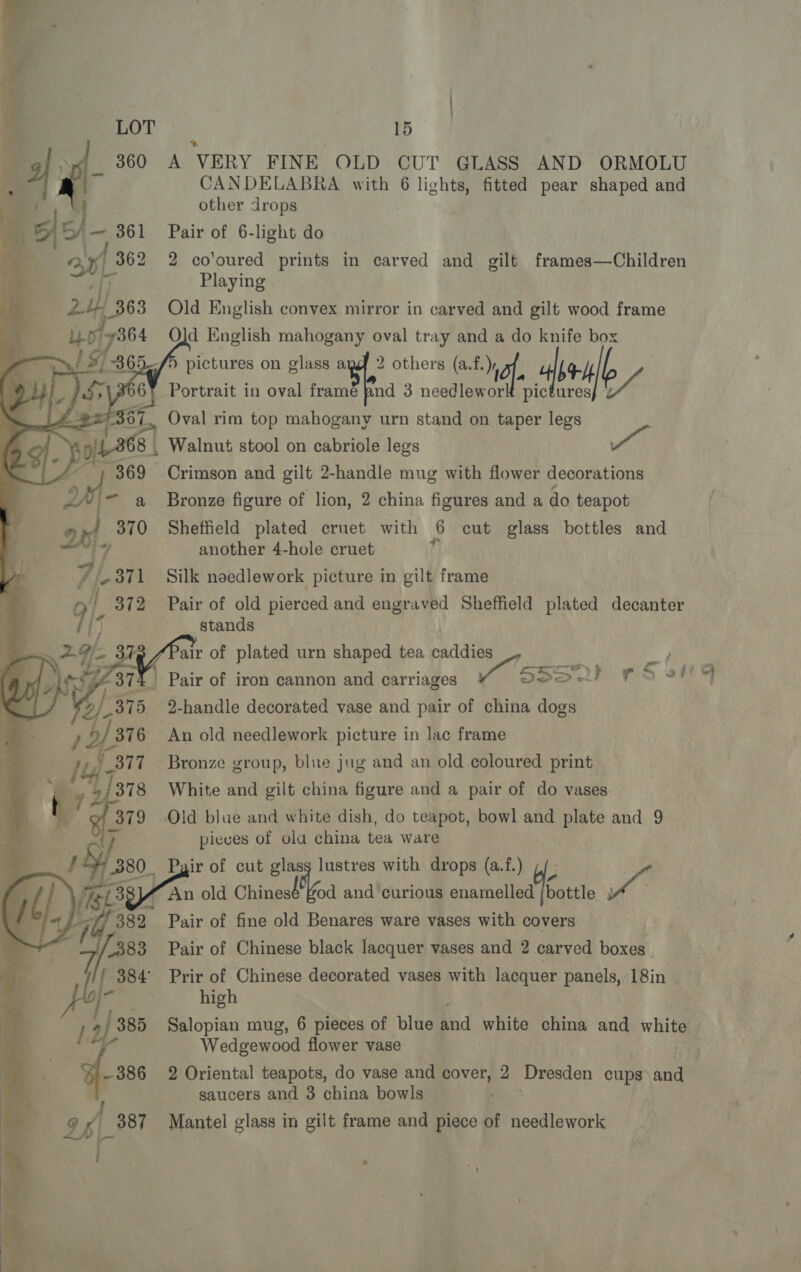 LOT 15
360 A VERY FINE OLD CUT GLASS AND ORMOLU
CANDELABRA with 6 lights, fitted pear shaped and
other drops
361 Pair of 6-light do
362 2 co'oured prints in carved and gilt frames—Children
Playing
363 Old English convex mirror in carved and gilt wood frame
364 Old English mahogany oval tray and a do knife box
365 5 pictures on glass and 2 others (a.f.)
366 Portrait in oval frame and 3 needlework pictures
367 Oval rim top mahogany urn stand on taper legs
368 Walnut stool on cabriole legs
369 Crimson and gilt 2-handle mug with flower decorations
a Bronze figure of lion, 2 china figures and a do teapot
370 Sheffield plated cruet with 6 cut glass bottles and
another 4-hole cruet
371 Silk needlework picture in gilt frame
372 Pair of old pierced and engraved Sheffield plated decanter
stands
373 Pair of plated urn shaped tea caddies
374 Pair of iron cannon and carriages
375 2-handle decorated vase and pair of china dogs
376 An old needlework picture in lac frame
377 Bronze group, blue jug and an old coloured print
378 White and gilt china figure and a pair of do vases
379 Old blue and white dish, do teapot, bowl and plate and 9
pieces of old china tea ware
380 Pair of cut glass lustres with drops (a.f.)
381 An old Chinese god and curious enamelled bottle
382 Pair of fine old Benares ware vases with covers
383 Pair of Chinese black lacquer vases and 2 carved boxes
384 Prir of Chinese decorated vases with lacquer panels, 18in
high
385 Salopian mug, 6 pieces of blue and white china and white
Wedgewood flower vase
386 2 Oriental teapots, do vase and cover, 2 Dresden cups and
saucers and 3 china bowls
387 Mantel glass in gilt frame and piece of needlework